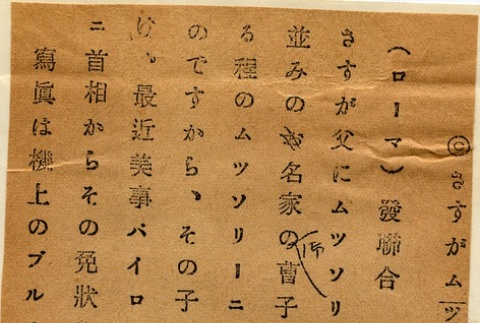 ◎さすがムツ
(ローマ)發聯合
さすが父にムツソリ
並みの名家の曹子
師
る程のムツソリーニ
のですから、その子
け、最近美事パイロ
ニ首相からその免狀
寫眞は機上のブル